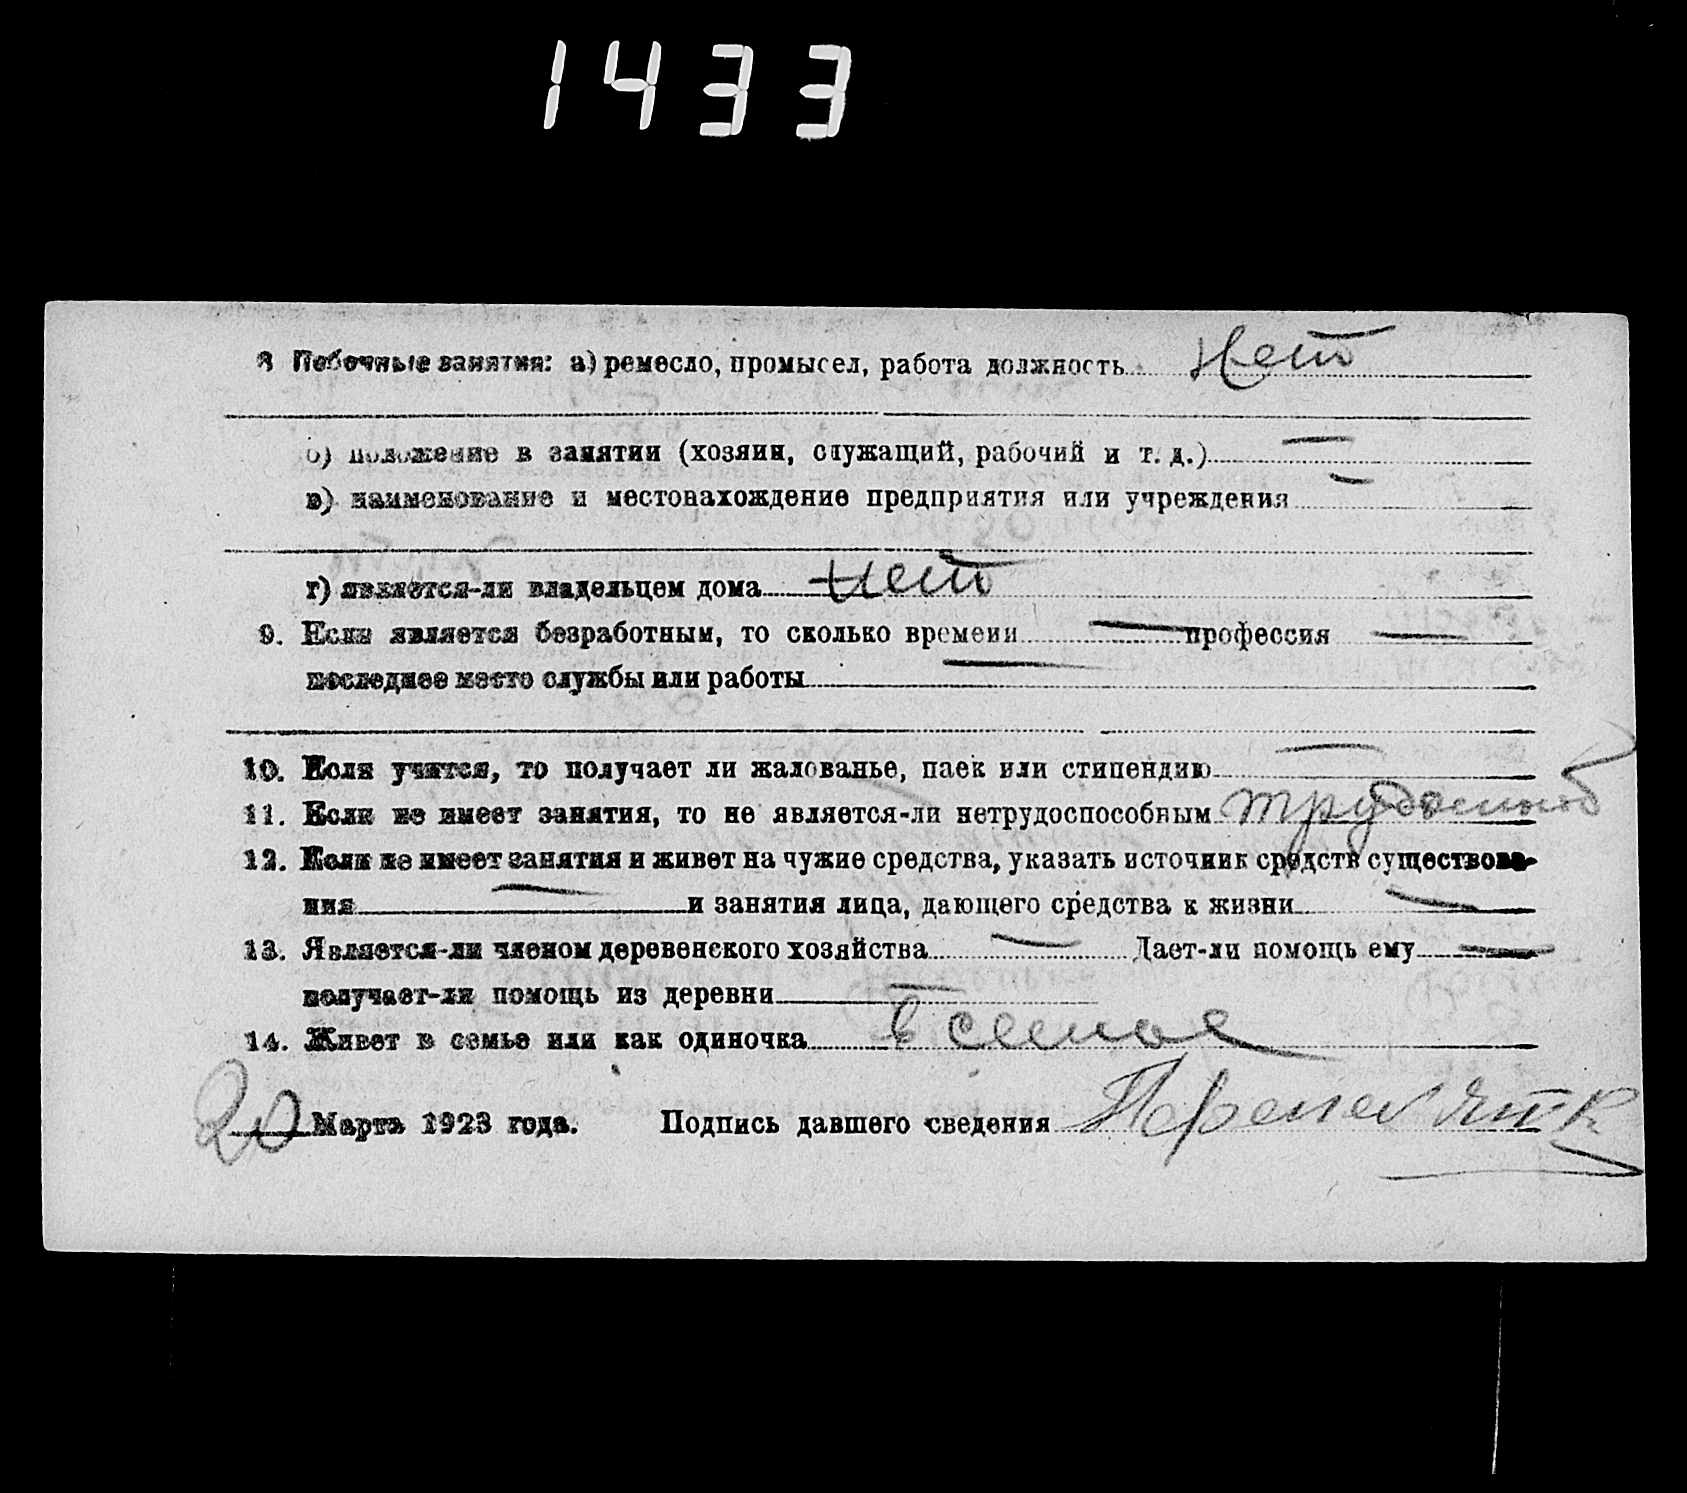 1433
8 Побочные занятия: а) ремесло, промысел, работа должность Нет
б) положение в занятии (хозяин, служащий, рабочий и т. д.) —
в) наименование и местонахождение предприятия или учреждения —
г) является-ли владельцем дома нет
9. Если является безработным, то сколько времени — профессия —
последнее место службы или работы —
10. Если учится, то получает ли жалованье, паек или стипендию —
11. Если не имеет занятия, то не является-ли нетрудоспособным
12. Если не имеет занятия и живет на чужие средства, указать источник средств существова-
ния — и занятия лица, дающего средства к жизни —
13. Является-ли членом деревенского хозяйства — Дает-ли помощь ему —
получает-ли помощь из деревни —
14. Живет в семье или как одиночка в семье
20 Марта 1923 года. Подпись давшего сведения